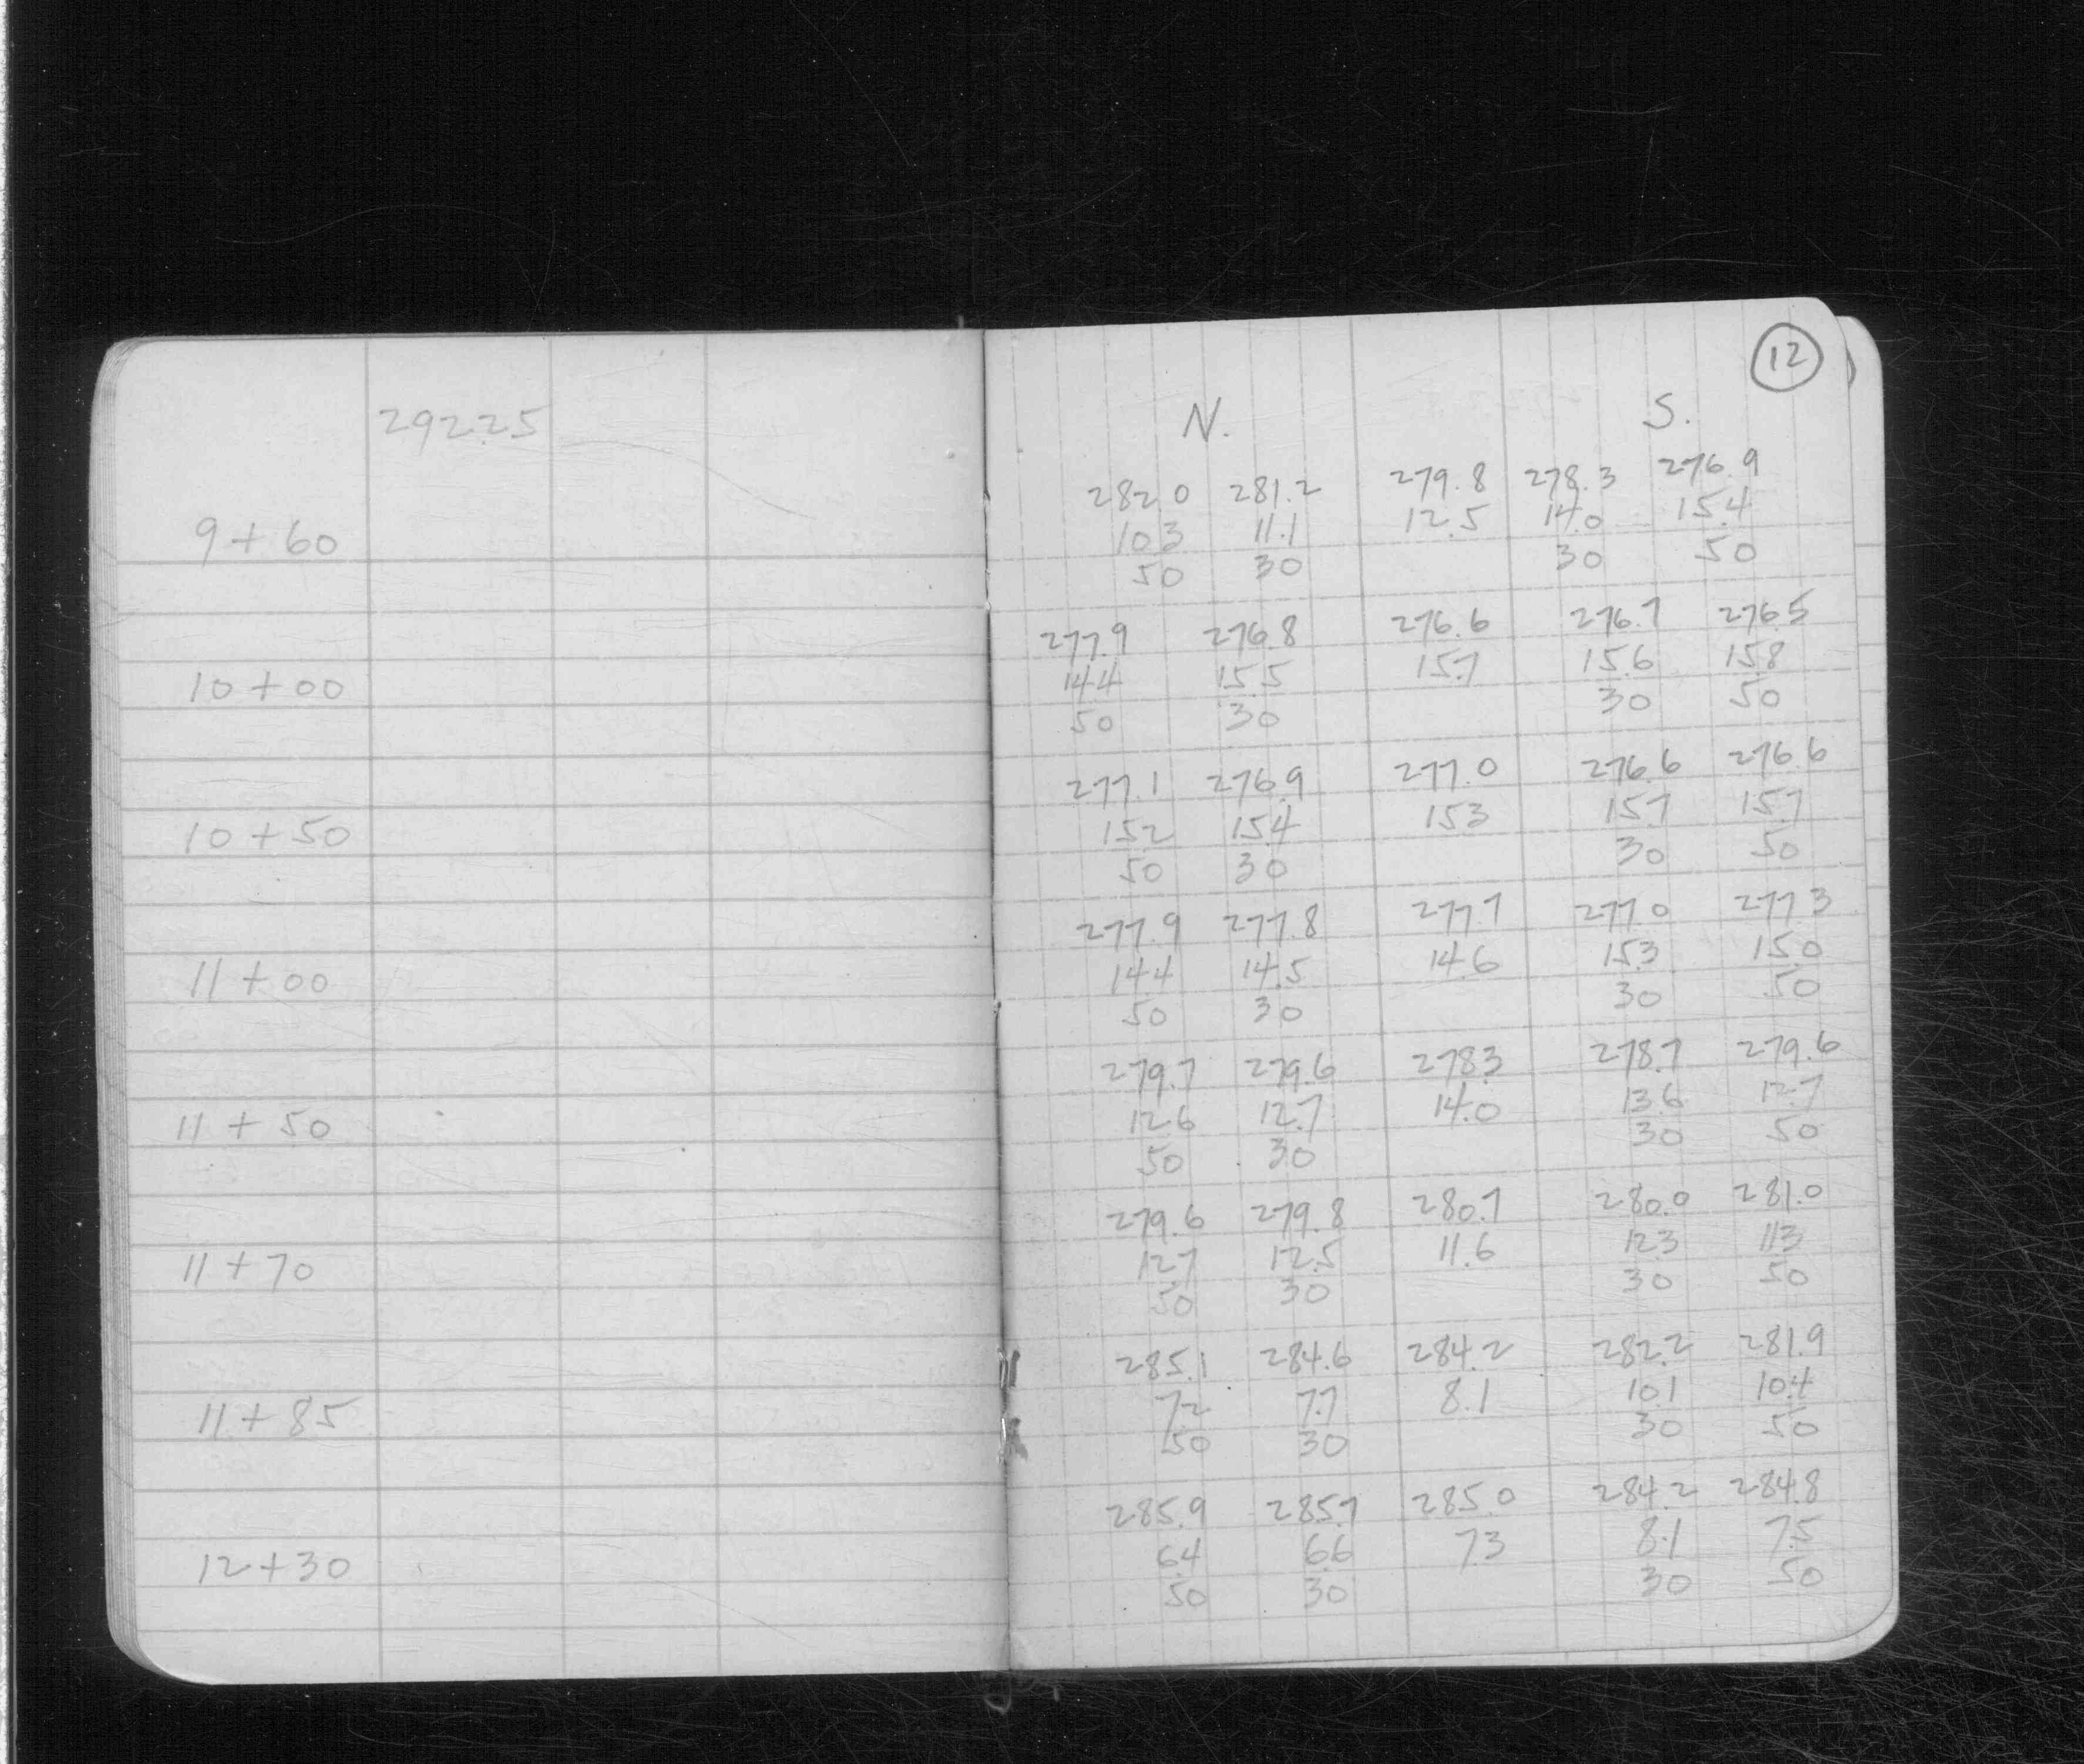 12
292.25
N. S.
282.0 281.2 279.8 278.3 276.9
9+60 10.3 11.1 12.5 14.0 15.4
50 30 30 50
277.9 276.8 276.6 276.7 276.5
10+00 14.4 15.5 15.7 15.6 15.8
50 30 30 50
277.1 276.9 277.0 276.6 276.6
10+50 15.2 15.4 15.3 15.7 15.7
50 30 30 50
277.9 277.8 277.7 277.0 277.3
11+00 14.4 14.5 14.6 15.3 15.0
50 30 30 50
279.7 279.6 278.3 278.7 279.6
11+50 12.6 12.7 14.0 13.6 12.7
50 30 30 50
279.6 279.8 280.7 280.0 281.0
11+70 12.7 12.5 11.6 12.3 11.3
50 30 30 50
285.1 284.6 284.2 282.2 281.9
11+85 7.2 7.7 8.1 10.1 10.4
50 30 30 50
285.9 285.7 285.0 284.2 284.8
12+30 6.4 6.6 7.3 8.1 7.5
50 30 30 50